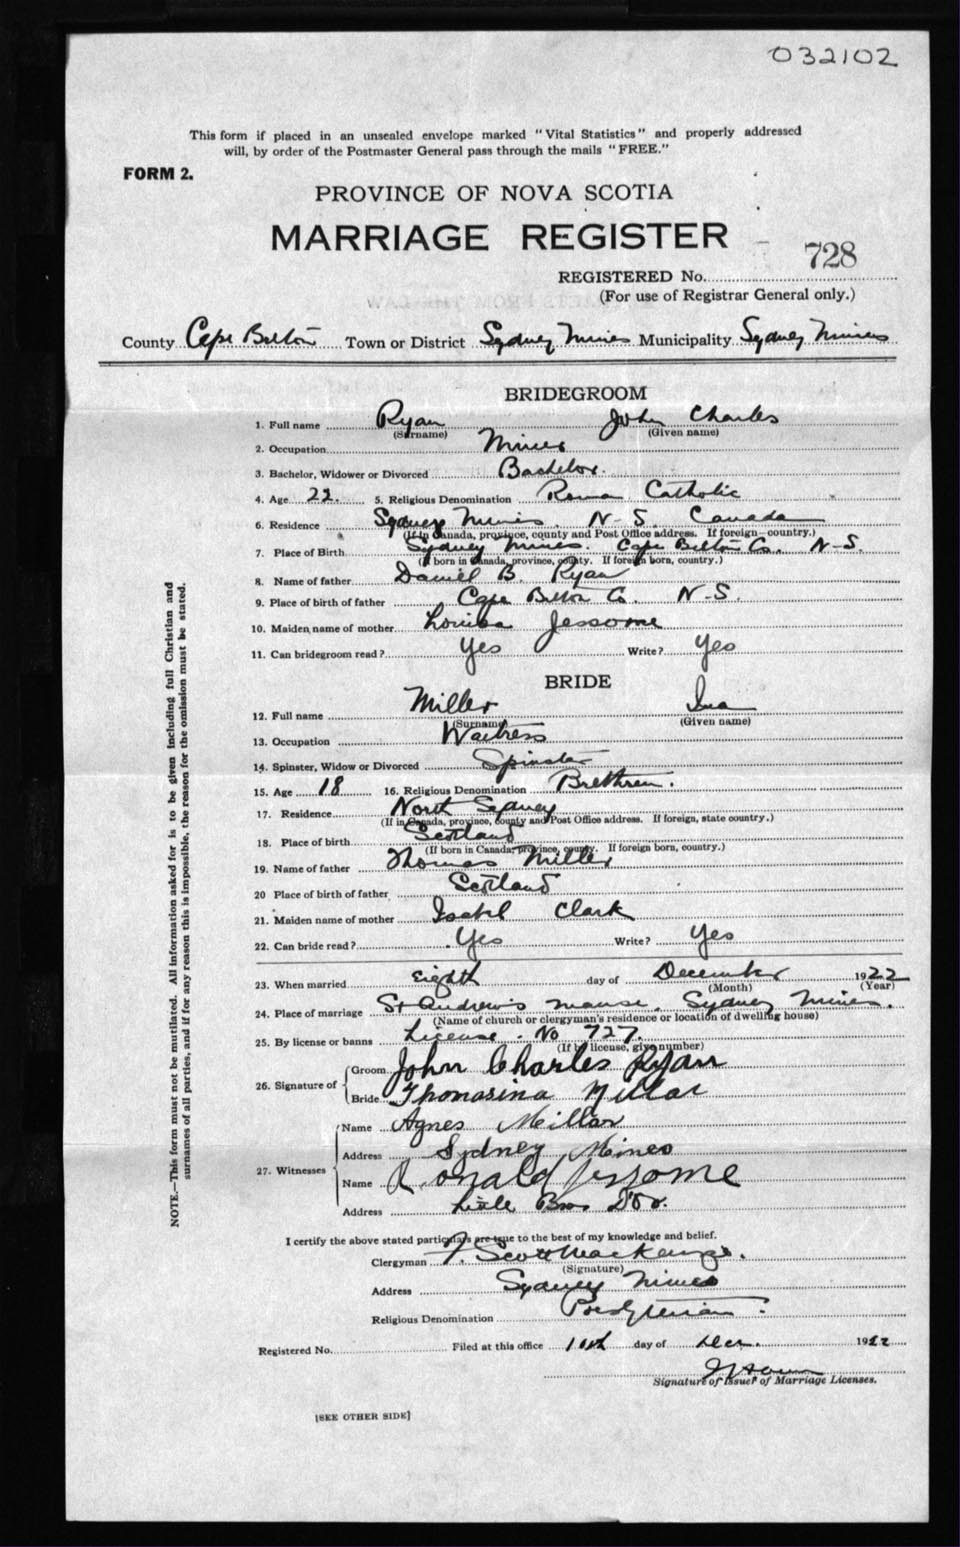 032102
This form if placed in an unsealed envelope marked "Vital Statistics" and properly addressed
will, by order of the Postmaster General pass through the mails "FREE."
FORM 2.
PROVINCE OF NOVA SCOTIA
MARRIAGE REGISTER
728
REGISTERED No.
(For use of Registrar General only.)
County Cape Breton Town or District Sydney Mines Municipality Sydney Mines
BRIDEGROOM
1. Full name Ryan John Charles
(Surname) (Given name)
2. Occupation Miner
3. Bachelor, Widower or Divorced Bachelor.
4. Age 22. 5. Religious Denomination Roman Catholic
6. Residence Sydney Mines. N-S. Canada
(If in Canada, province, county and Post Office address. If foreign—country.)
7. Place of Birth Sydney Mines. Cape Breton Co. N-S.
(If born in Canada, province, county. If foreign born, country.)
8. Name of father Daniel B. Ryan
9. Place of birth of father Cape Breton Co. N-S.
10. Maiden name of mother Louisa Jessome
11. Can bridegroom read? Yes Write? Yes
BRIDE
12. Full name Miller Ina
(Surname) (Given name)
13. Occupation Waitress
14. Spinster, Widow or Divorced Spinster
15. Age 18 16. Religious Denomination Brethren.
17. Residence North Sydney
(If in Canada, province, county and Post Office address. If foreign, state country.)
18. Place of birth Scotland
(If born in Canada, province, county. If foreign born, country.)
19. Name of father Thomas Miller
20 Place of birth of father Scotland
21. Maiden name of mother Isabel Clark
22. Can bride read? Yes Write? Yes
23. When married eighth day of December 1922
(Month) (Year)
24. Place of marriage St Andrew's manse, Sydney Mines.
(Name of church or clergyman's residence or location of dwelling house)
25. By license or banns License. No 727.
(If by license, give number)
26. Signature of Groom John Charles Ryan
Bride Thomasina Millar
27. Witnesses Name Agnes Millar
Address Sydney Mines
Name Ronald Jessome
Address Little Bras D'or.
I certify the above stated particulars are true to the best of my knowledge and belief.
Clergyman Scott MacKenzie.
(Signature)
Address Sydney Mines
Religious Denomination Presbyterian.
Registered No. Filed at this office 10th day of Dec. 1922
Signature of Issuer of Marriage Licenses.
[SEE OTHER SIDE]
NOTE.—This form must not be mutilated. All information asked for is to be given including full Christian and
surnames of all parties, and if for any reason this is impossible, the reason for the omission must be stated.